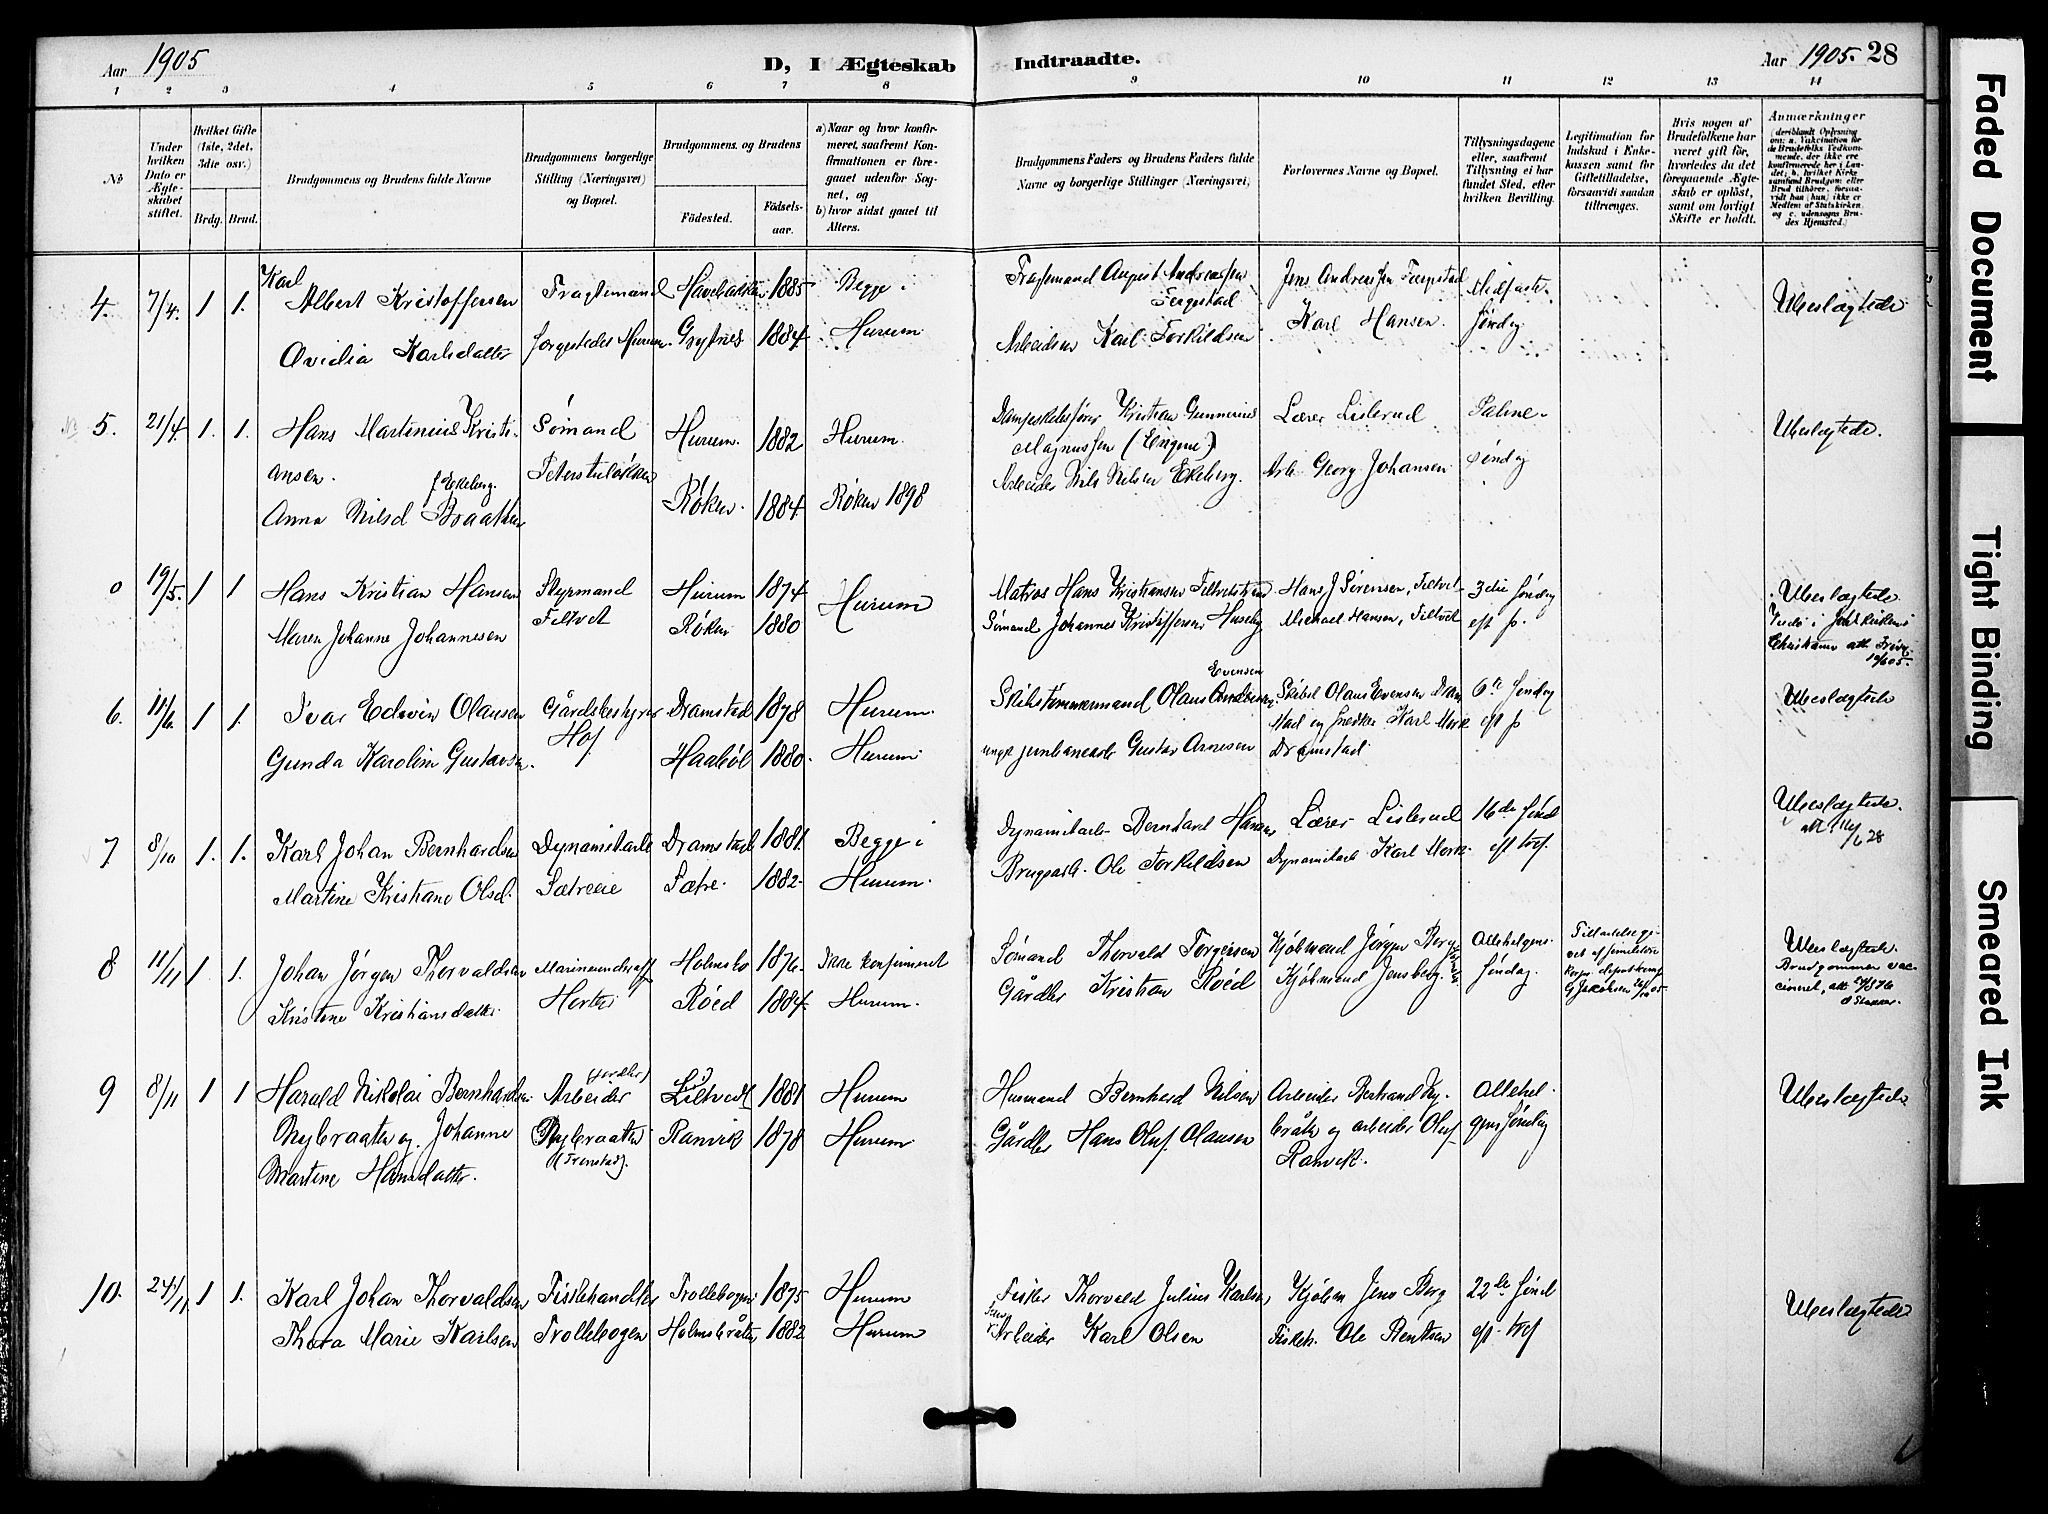 Aar 1905
D, I Ægteskab Indtraadte.
Aar 1905. 28
1 2 3 4 5 6 7 8 9 10 11 12 13 14
No
Under hvilken Dato er Ægteskabet stiftet.
Hvilket Gifte (1ste, 2det, 3die osv.)
Brdg. Brud.
Brudgommens og Brudens fulde Navne
Brudgommens borgerlige Stilling (Næringsvei) og Bopæl.
Brudgommens og Brudens
Födested.
Födselsaar.
a) Naar og hvor konfirmeret, saafremt Konfirmationen er foregaaet udenfor Sognet, og
b) hvor sidst gaaet til Alters.
Brudgommens Faders og Brudens Faders fulde Navne og borgerlige Stillinger (Næringsvei)
Forlovernes Navne og Bopæl.
Tillysningsdagene eller, saafremt Tillysning ei har fundet Sted, efter hvilken Bevilling.
Legitimation for Indskud i Enkekassen samt for Giftetilladelse, forsaavidt saadan tiltrænges.
Hvis nogen af Brudefolkene har været gift för, hvorledes da det foregaaende Ægteskab er oplöst, samt om lovligt Skifte er holdt.
Anmærkninger
4. 7/4. 1 1. Karl Albert Kristoffersen Fragtemand 1885 Begge i Fragtemand August Andreassen Jens Andreassen Midfaste- Ubeslægtede
Ovidia Karlsdatter Hurum. Grytnes 1884 Hurum Arbeider Karl Torkildsen Karl Hansen. Søndag
5. 21/4. 1. 1. Hans Martinius Kristi- Sømand Hurum. 1882 Hurum. Kristian Gunnerius Lærer Lislerud Palme- Ubeslægtede.
ansen. Magnussen søndag
f Ekeberg.
Anna Nilsd Braathen Røken. 1884 Røken 1898 Arbeider Nils Nilsen Ekeberg. Arb. Georg Johansen
0 19/5. 1 1 Hans Kristian Hansen Styrmand Hurum 1874 Hurum Matros Hans Kristiansen Hans J Sørensen, Filtvet 3die Søndag Ubeslægtede
Maren Johanne Johannesen Filtvet Røken 1880 Sømand Johannes Kristoffersen Huseby Michael Hansen, Filtvet eft p.
6. 11/6. 1 1. Ivar Edvin Olausen Gårdsbestyrer Dramstad 1878 Hurum. Skibstømmermand Olaus Evensen Skibst Olaus Evensen Dram 6te Søndag Ubeslægtede
Gunda Karoline Gustavsen. Hof Haabøl 1880. Hurum Gustav Arnesen stad og Snedker Karl Mork eft p
Dramstad
7 8/10 1. 1. Karl Johan Bernhardsen Dynamitarb Dramstad 1881 Begge i Dynamitarb Bernhard Hansen Lærer Lislerud 16de Sønd Ubeslægtede.
Martine Kristiane Olsd. Sætreeie Sætre. 1882. Hurum. Brugsarb. Ole Torkildsen Dynamitarb Karl Mork eft tref.
28
8 11/11 1. 1. Johan Jørgen Thorvaldsen Holmsbo 1876. Ikke konfirmeret Sømand Thorvald Torgersen Kjøbmand Jørgen Berg Allehelgens- Ubeslægtede
Kristine Kristiansdatter Horten Røed 1884. Hurum. Gårdbr Kristian Røed Kjøbmand Jens Berg Søndag. Brudgommen vac-
cineret, att
9 8/11 1 1 Harald Nikolai Bernhardsen Arbeider 1881 Hurum Husmand Bernhard Nilsen Arbeider Bertrand Ny- Allehel- Ubeslægtede
Nybraaten og Johanne Nybraaten Ramvik 1878 Hurum Gårdbr Hans Oluf Olausen bråte og arbeider Oluf gens Søndag
Martine Hansdatter. (Tronstad). Ramvik.
10. 24/11 1 1. Karl Johan Thorvaldsen Fiskehandler Trollebogen 1875 Hurum Fisker Thorvald Julius Karlsen Kjøbm Jens Berg 22de Sønd Ubeslægtede
Thora Marie Karlsen Trollebogen Holmsbråten 1882 Hurum Arbeider Karl Olsen Fiskeh. Ole Berntsen eft. tref
Faded Document
Tight Binding
Smeared Ink